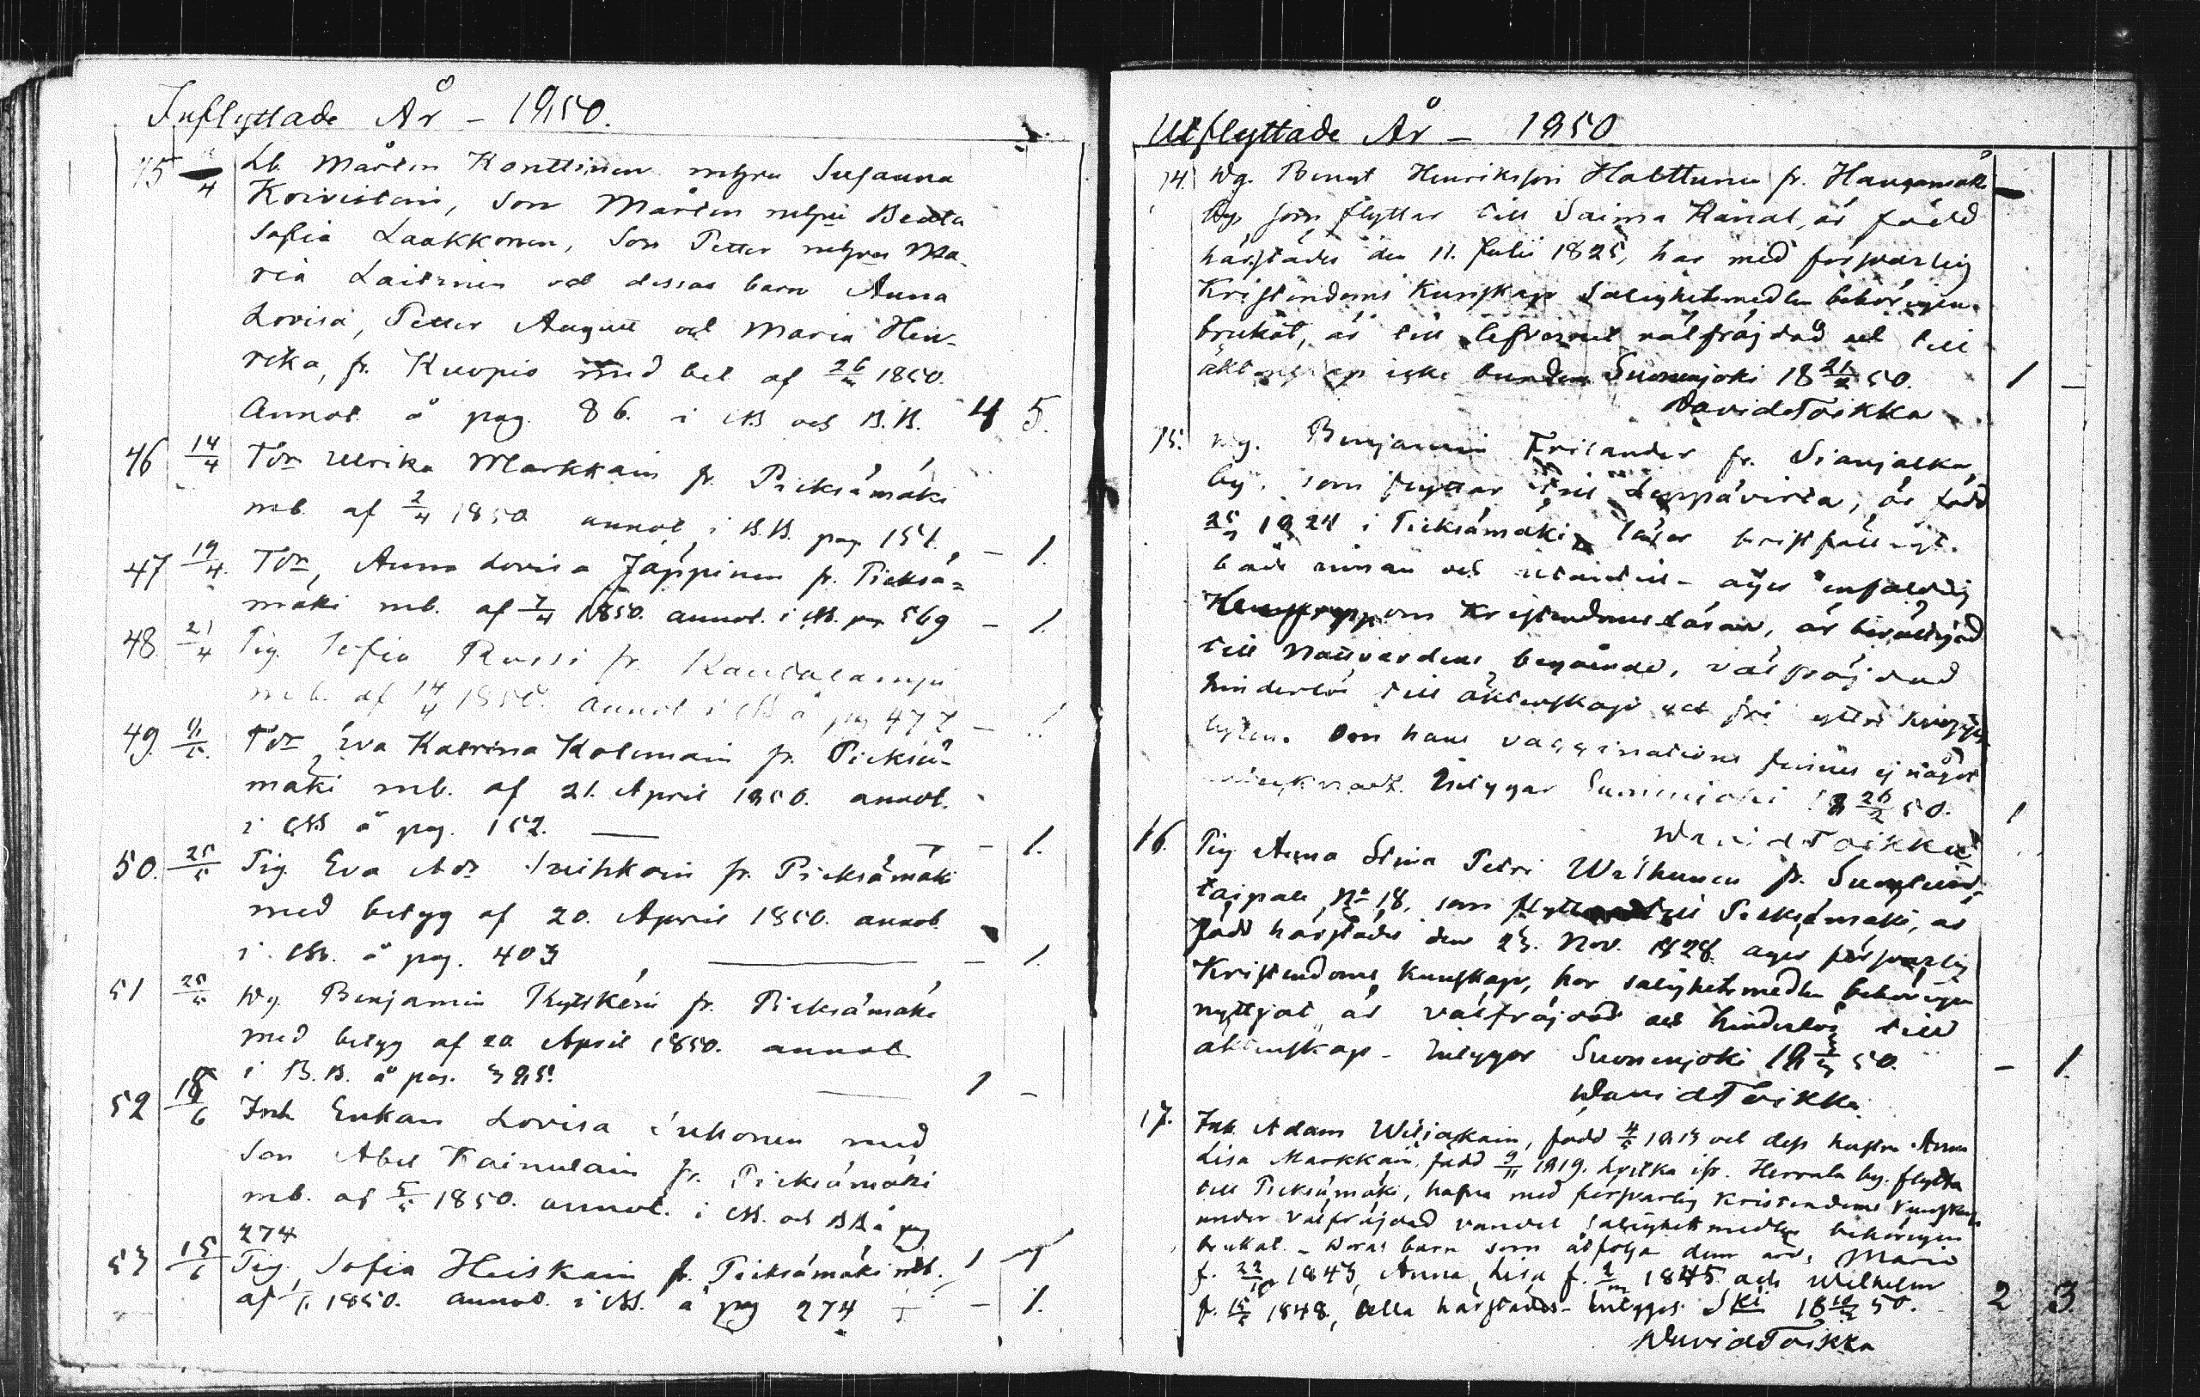 Inflyttade År - 1850.
45 /4 Lb. Mårten Konttinen m hru Susanna
Koivistain, Son Mårten m hru Beata
Sofia Laakkonen, Son Petter m hru Ma-
ria Laitinen och dessas barn Anna
Lovisa, Petter August och Maria Hen-
rika, fr. Kuopio med bet. af 26/ 1850.
Annot å pag. 86. i MB och B.B. 4 5.
46 14/4 Tdr Ulrika Markkain fr. Pieksämäki
mb. af 2/4 1850 annot. i B.B. pag 151. - 1.
47 19/4. Tdr, Anna Lovisa Jäppinen fr. Pieksä=
mäki mb. af 7/4 1850. annot. i MB. pag 569 - 1.
48 21/4 Pig. Sofia Russi fr. Rautalampi
mb. af 14/4 1850. annot i MB å pag 477 -
49. /5. Tdr Eva Katrina Kolimain fr. Pieksä-
mäki mb. af 21. April 1850. annot.
i MB å pag. 152. - 1.
50. 25/5 Pig. Eva Adr fr. Pieksämäki
med betyg af 20. April 1850. annot.
i MB. å pag. 403 - 1.
51 25/5 Dg. Benjamin fr. Pieksämäki
med betyg af 20. April 1850. annot
i B.B. å pag. 385. 1 -
52 18/6 Inh Enkan Lovisa med
Son Abel Kainulain fr. Pieksämäki
mb. af 5/5 1850. annot. i MB. och BB å pag
274 1 1
53 15/6 Pig. Sofia Heiskain fr. Pieksämäki mb.
af 1850. annot. i MB. å pag 274 - 1.
Utflyttade År - 1850
14. Dg. Bengt Henriksson Halttunen fr. Haugamäki
by, som flyttar till Saima Kanal, är född
härstädes den 11. Julii 1825, har med försvarlig
Kristendoms Kunskap Salighetsmedlen behörigen
brukat, är till lefvernet välfräjdad och till
äktenskap icke bunden Suonenjoki 18 21/2 50. 1 -
David Toikka
15. Dg. Benjamin Frilander fr. Sianjalka
by, som flyttar till Leppävirta, är född
25/ 1824 i Pieksämäki, läser bristfälligt
både innan och utantill - äger enfaldig
Kunskap om Kristendoms läran, är berättigad
till Nattvardens begående, välfräjdad
hinderlös till äktenskap och fri yttre
lyten. Om hans vaccination finnes ej något
antecknadt. Intygar Suonenjoki 18 26/2 50. 1
David Toikka
16. Pig Anna Stina Petri Waihunen fr. Suontein-
taipale No 18, som flyttar till Pieksämäki, är
född härstädes den 23. Nov. 1828 äger försvarlig
Kristendoms Kunskap, har salighetsmedlen behörigen
nyttjat är välfräjdad och hinderlös till
äktenskap - Intygar Suonenjoki 18 /3 50. - 1.
David Toikka
17. Inh. Adam Wiljakain, född 4/5 1813 och dess hustru Anna
Lisa Markkain, född 9/11 1819. Lyttkä i fr. Herrala by. flytta
till Pieksämäki, hafva med försvarlig Kristendoms Kunskap
under välfräjdad vandel Salighetsmedlen behörigen
brukat. - Deras barn som åtfölja dem äro, Maria
f. 22/ 1843, Anna Lisa f. 1845 och Wilhelm
f. 15/ 1848, alla härstädes - Intygas Ski 18 10/3 50. 2 3.
David Toikka